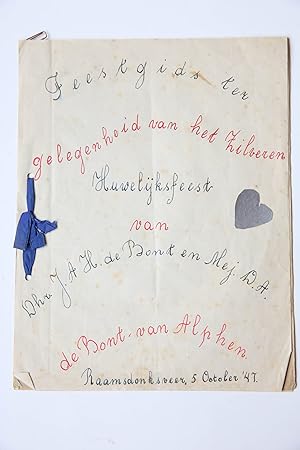 Feestgids ter
gelegenheid van het Zilveren
Huwelijksfeest
van
Dhr. J. A. H. de Bont en Mej. D. A.
de Bont-van Alphen.
Raamsdonksveer, 5 October '47.